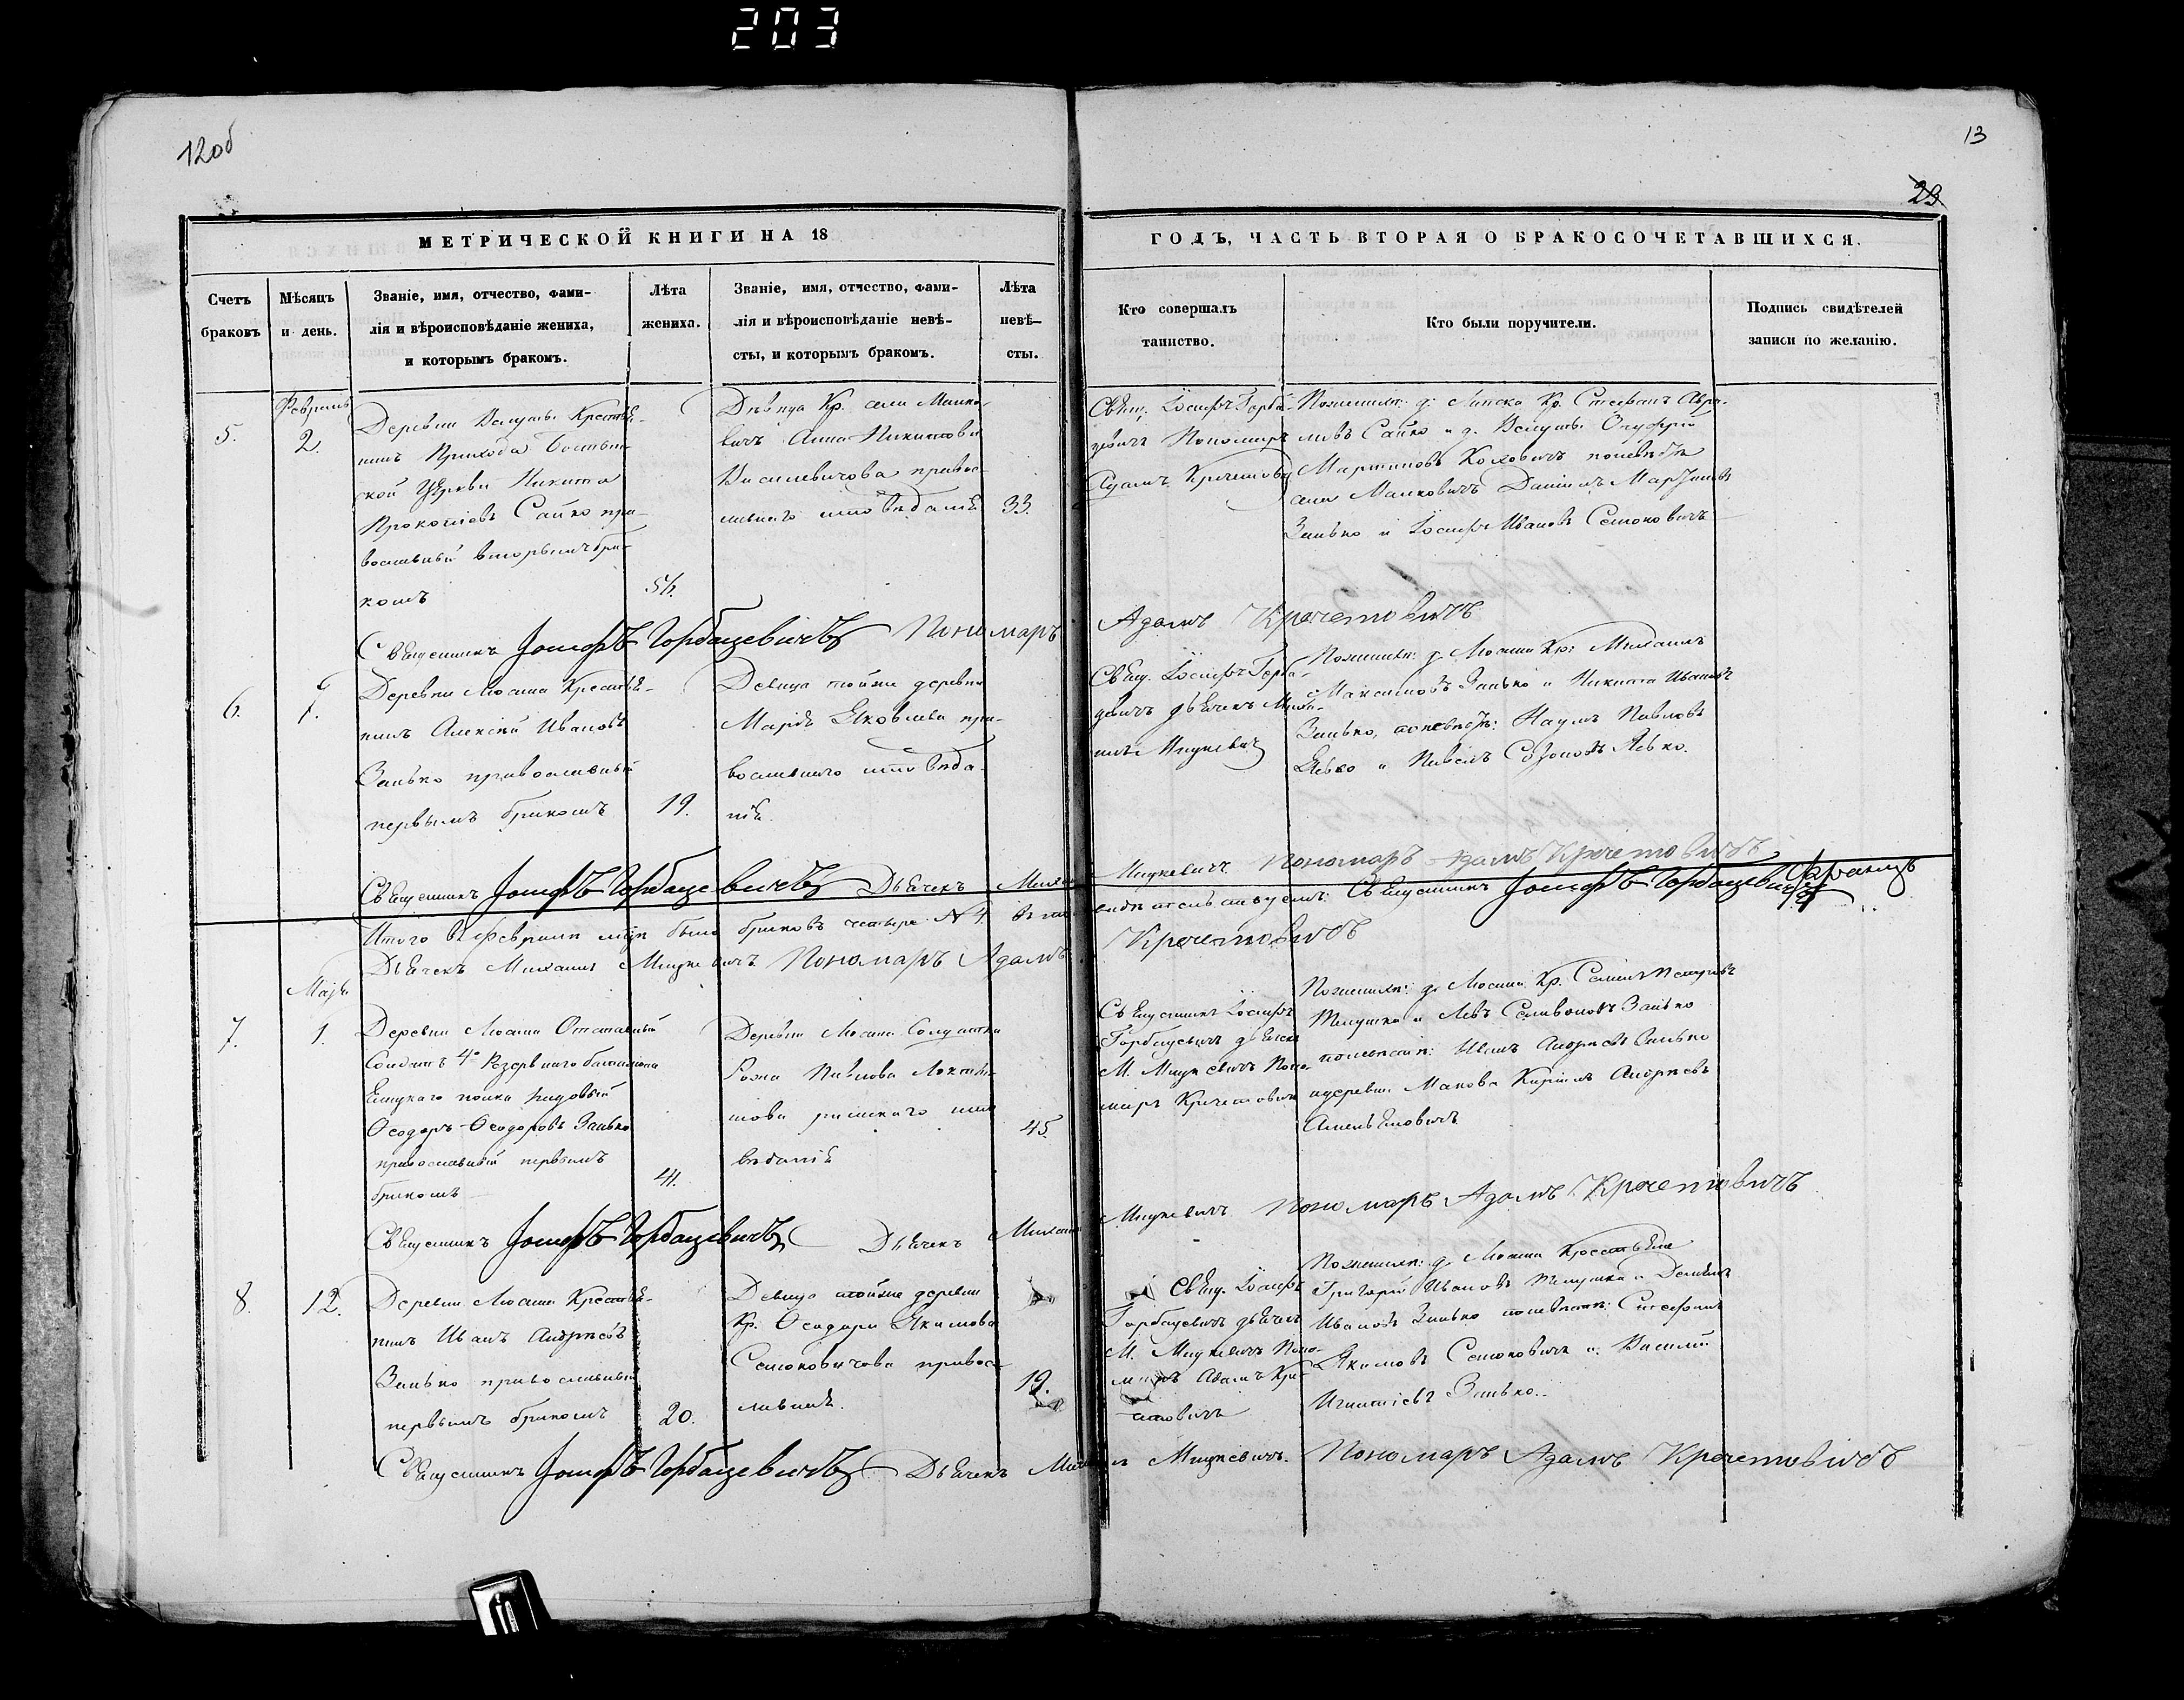 203
12 об
13
29
МЕТРИЧЕСКОЙ КНИГИ НА 18
ГОДЪ, ЧАСТЬ ВТОРАЯ О БРАКОСОЧЕТАВШИХСЯ.
Счетъ
браковъ
Мѣсяцъ
и день.
Званіе, имя, отчество, фами-
лія и вѣроисповѣданіе жениха,
и которымъ бракомъ.
Лѣта
жениха.
Званіе, имя, отчество, фами-
лія и вѣроисповѣданіе невѣ-
сты, и которымъ бракомъ.
Лѣта
невѣ-
сты.
Кто совершалъ
таинство.
Кто были поручители.
Подпись свидѣтелей
записи по желанію.
5.
Февраль
2.
Деревни Крестья-
нинъ Прихода
ской Церкви Никита
Прокопіевъ Сайко пра-
вославный вторымъ бра-
комъ
Девица Кр. села Малко-
вичъ Анна Никитова
Василевичова правос-
лавнаго исповѣданія
33.
Свящ. Іосифъ Горба-
цевичъ Пономарь
Адамъ Кречетович
По женихѣ: д. Липска Кр. Стефанъ Авра-
мовъ Сайко и д. Онуфрій
Мартиновъ по невѣстѣ
села Малковичъ Даніилъ Мартиновъ
Занько и Іосифъ Ивановъ Семоковичъ
Священникъ Іосифъ Горбацевичъ Пономарь Адамъ Кречетовичъ
6.
7.
Деревни Люсина Крестья-
нинъ Алексій Ивановъ
Занько православный
первымъ бракомъ
19.
Девица тойже деревни
Марія Яковлева пра-
вославнаго исповѣда-
нія.
Свящ. Іосифъ Горба-
цевичъ дьячекъ Миха-
илъ Мицкевич
По женихѣ: д. Люсина Кр: Михаилъ
Максимовъ Занько и Никита Ивановъ
Занько, по невѣстѣ: Наумъ Павловъ
и Павелъ Созоновъ
Священникъ Іосифъ Горбацевичъ Дьячекъ Михаилъ Мицкевичъ Пономарь Адамъ Кречетовичъ
Итого въ Февралѣ мцѣ было браковъ четыре № 4. въ томъ свидѣтельствуемъ: Священникъ Іосифъ Горбацевичъ
Дьячекъ Михаилъ Мицкевичъ Пономарь Адамъ Кречетовичъ
7.
Маія
1.
Деревни Люсина Отставный
Солдатъ 4го Резервнаго баталіона
Елецкаго полка рядовый
Ѳеодоръ Ѳеодоровъ Занько
православный первымъ
бракомъ
41.
Деревни Люсина Солдатка
Розна Павлова
римскаго испо
вѣданія
45.
Священникъ Іосифъ
Горбацевичъ дьячекъ
М. Мицкевичъ Поно-
марь Кречетовичъ
По женихѣ: д. Люсина Кр. Петровъ
и Левъ Селивоновъ Занько
по невѣстѣ: Иванъ Андреевъ Занько
и деревни Макова Кириллъ Андреевъ
Священникъ Іосифъ Горбацевичъ Дьячекъ Михаилъ Мицкевичъ Пономарь Адамъ Кречетовичъ
8.
12.
Деревни Люсина Крестья-
нинъ Иванъ Андреевъ
Занько православный
первымъ бракомъ
20.
Девица тойже деревни
Кр. Ѳеодора Якимова
Семоковичова правос-
лавная.
19.
Свящ. Іосифъ
Горбацевичъ дьячекъ
М. Мицкевичъ Поно-
марь Адамъ Кре-
четовичъ
По женихѣ: д. Люсина Крестьяне
Григорій Ивановъ и Демьянъ
Ивановъ Занько по невѣстѣ: Стефанъ
Якимовъ Семоковичъ и Василій
Игнатіевъ Занько.
Священникъ Іосифъ Горбацевичъ Дьячекъ Михаилъ Мицкевичъ. Пономарь Адамъ Кречетовичъ